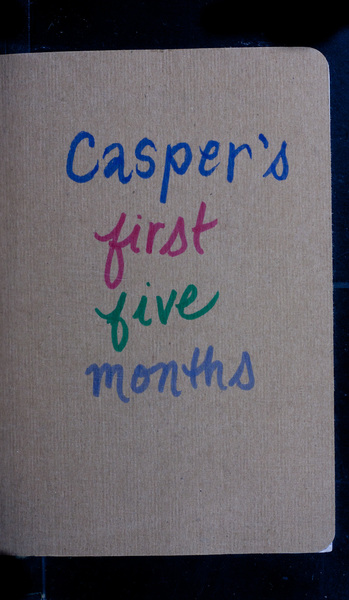 Casper's
first
five
months